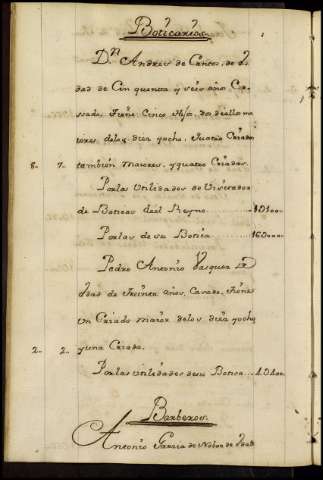 Boticarios.
Dn. Andres de Cantos, de e
dad de Cinquenta y seis años Ca
sado, tiene Cinco Hijos, dos de ellos ma
iores, delos diez yocho, quatro Criados
8. 7. tambien maiores, y quatro Criadas.
Por las Utilidades de Visitador
de Boticas deel Reyno
Por las de su Botica
Pedro Antonio Vasquez
edad de treinta años, Casado, tiene
un Criado maior delos diez yocho
2. 2. y una Criada.
Por las utilidades desu Botica
Barberos.
Antonio Garcia de